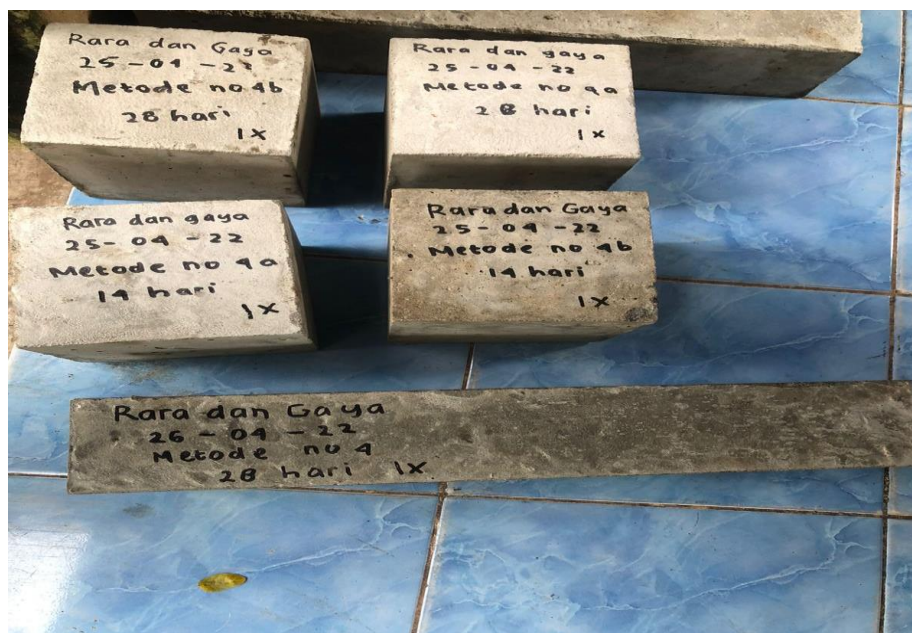 Rara dan Gaya
25-04-22
Metode no 4b
28 hari
1x
Rara dan gaya
25-04-22
Metode no 4a
28 hari
1x
Rara dan gaya
25-04-22
Metode no 4a
14 hari
1x
Rara dan Gaya
25-04-22
Metode no 4b
14 hari
1x
Rara dan Gaya
26-04-22
Metode no 4
28 hari 1x